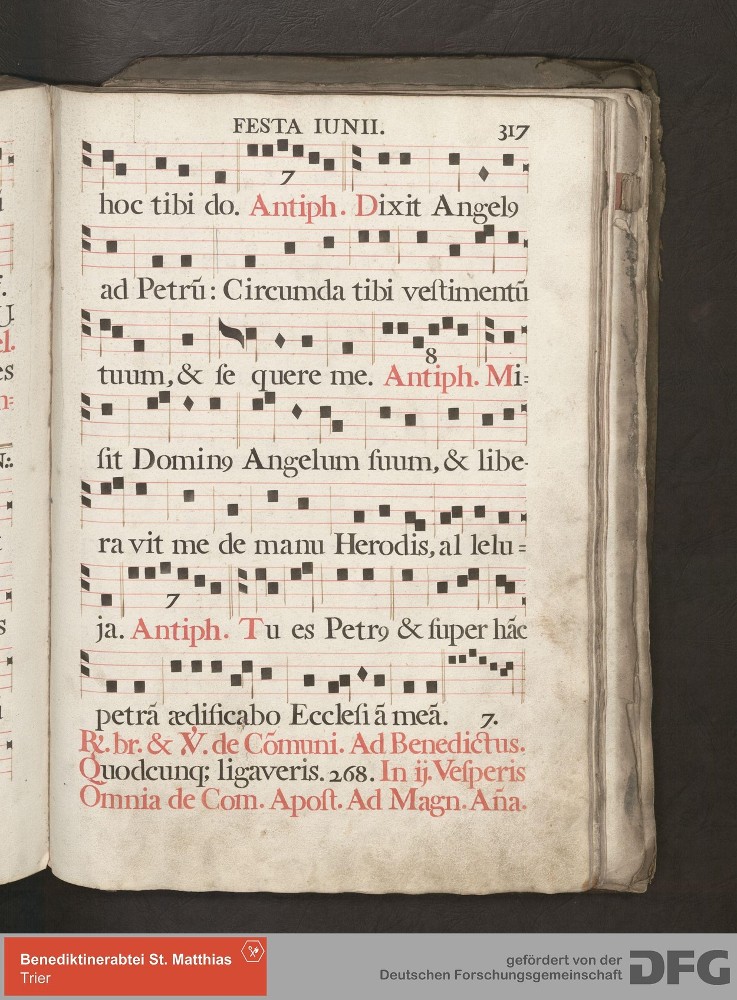 FESTA IUNII. 317
7
hoc tibi do. Antiph. Dixit Angelꝯ
ad Petrū: Circumda tibi veſtimentū
8
tuum, & ſe quere me. Antiph. Mi=
ſit Dominꝯ Angelum ſuum, & libe-
ra vit me de manu Herodis, al lelu=
7
ja. Antiph. Tu es Petrꝯ & ſuper hāc
petrā ædificabo Eccleſi ā meā. 7.
℟. br. & ℣. de Cōmuni. Ad Benedictus.
Quodcunq; ligaveris. 268. In ij. Veſperis
Omnia de Com. Apoſt. Ad Magn. Aña.
Benediktinerabtei St. Matthias
Trier
gefördert von der
Deutschen Forschungsgemeinschaft
DFG